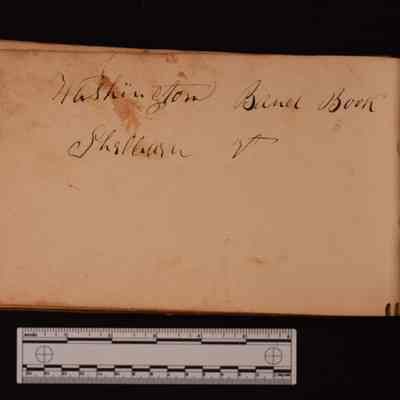 Washington Band Book
Shelburn Vt